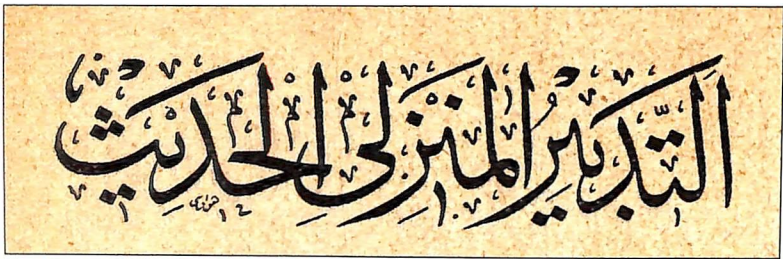 اَلتَّدبيرُ المنزلى الحديث